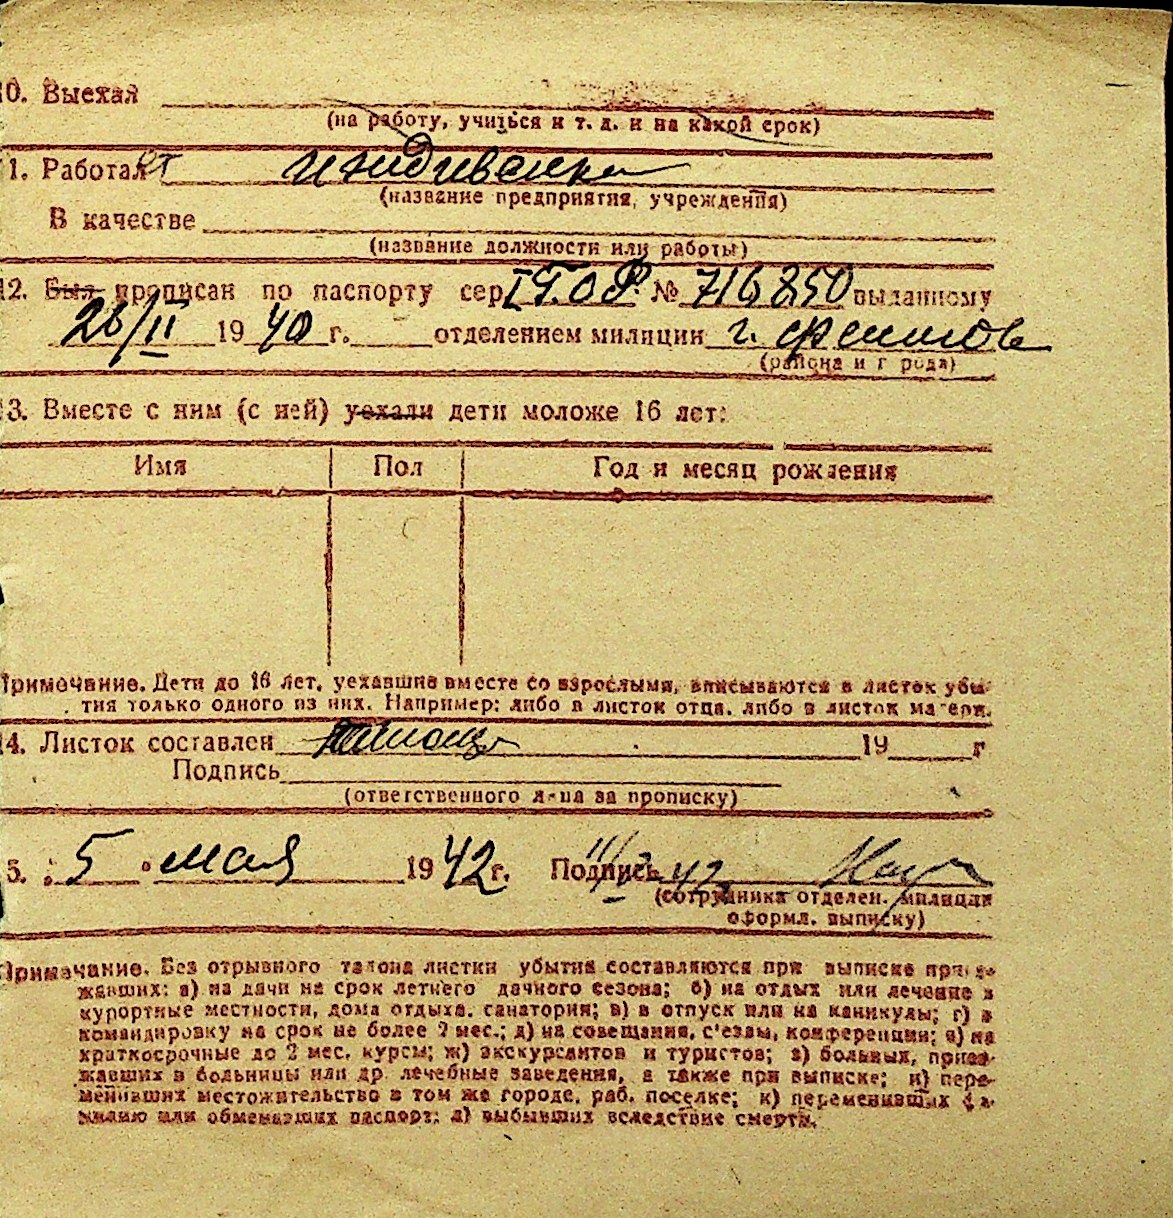 10. Выехал
(на работу, учиться и т. д. и на какой срок)
11. Работает иждивенка
(название предприятия, учреждения)
В качестве
(название должности или работы)
12. Был прописан по паспорту сер № 716850 выданному
26/II 1940 г. отделением милиции г.
(района и города)
13. Вместе с ним (с ней) уехали дети моложе 16 лет:
Имя Пол Год и месяц рождения
Примечание. Дети до 16 лет, уехавшие вместе со взрослыми, вписываются в листок убы-
тия только одного из них. Например: либо в листок отца, либо в листок матери.
14. Листок составлен 19 г
Подпись
(ответственного лица за прописку)
15. „5“ мая 1942 г. Подпись
(сотрудника отделен. милиции
оформл. выписку)
Примечание. Без отрывного талона листки убытия составляются при выписке приез-
жавших: а) на дачи на срок летнего дачного сезона; б) на отдых или лечение в
курортные местности, дома отдыха, санатория; в) в отпуск или на каникулы; г) в
командировку на срок не более 2 мес.; д) на совещания, с'езды, конференции; е) на
краткосрочные до 2 мес. курсы; ж) экскурсантов и туристов; з) больных, приез-
жавших в больницы или др. лечебные заведения, а также при выписке; и) пере-
менивших местожительство в том же городе, раб. поселке; к) переменивших фа-
милию или обменявших паспорт; л) выбывших вследствие смерти.